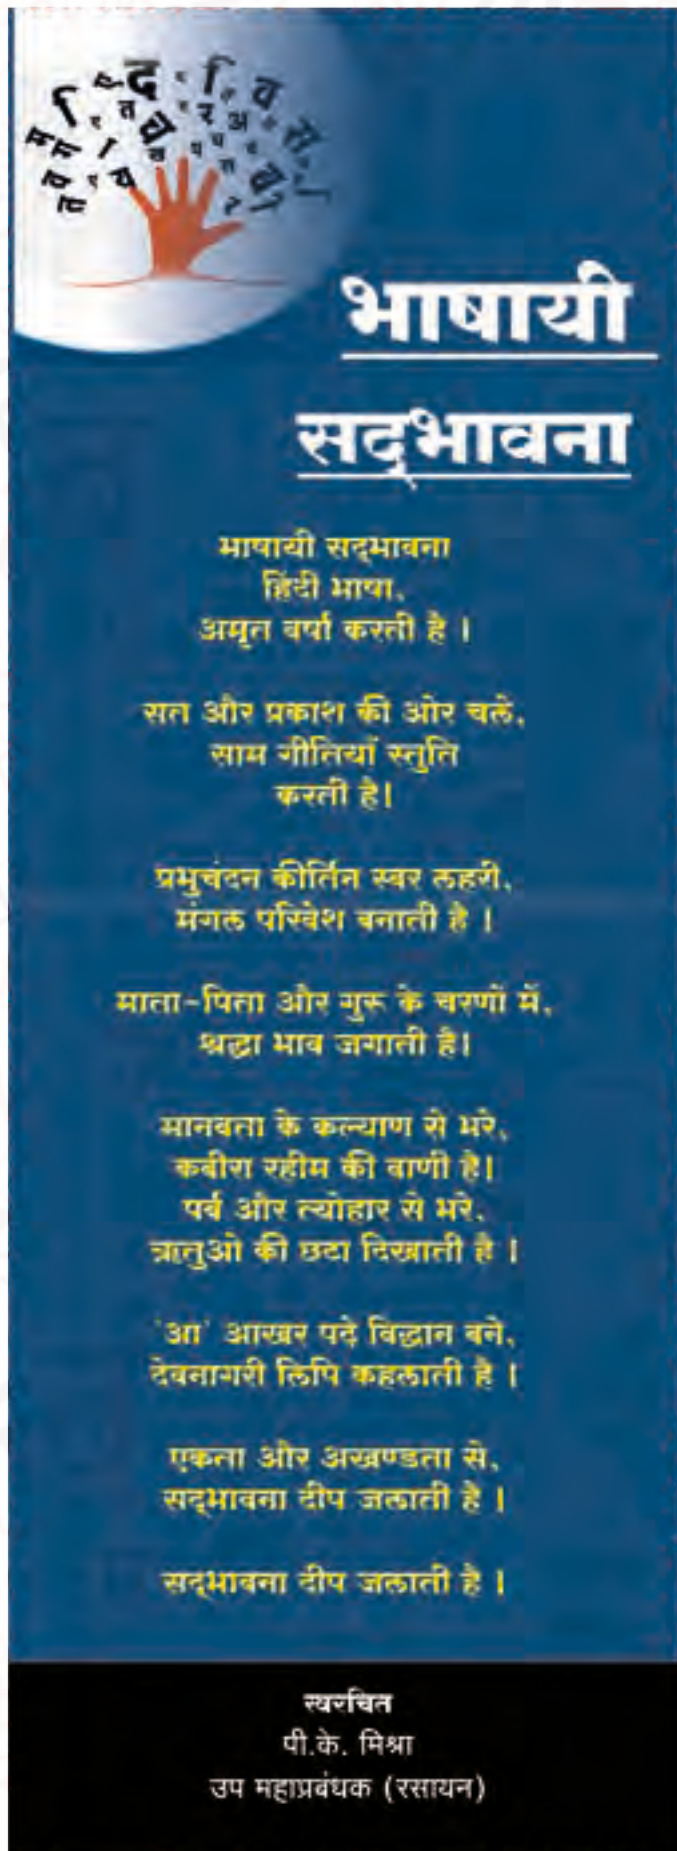 भाषायी
सद्भावना
भाषायी सद्भावना
हिंदी भाषा,
अमृत वर्षा करती है ।
सत और प्रकाश की ओर चले,
साम गीतियाँ स्तुति
करती है।
प्रभुचंदन कीर्तिन स्वर लहरी,
मंगल परिवेश बनाती है ।
माता-पिता और गुरू के चरणों में,
श्रद्धा भाव जगाती है।
मानवता के कल्याण से भरे,
कबीरा रहीम की वाणी है।
पर्व और त्योहार से भरे,
ऋतुओ की छटा दिखाती है ।
'आ' आखर पढ़े विद्धान बने,
देवनागरी लिपि कहलाती है ।
एकता और अखण्डता से,
सद्भावना दीप जलाती है ।
सद्भावना दीप जलाती है ।
स्वरचित
पी.के. मिश्रा
उप महाप्रबंधक (रसायन)